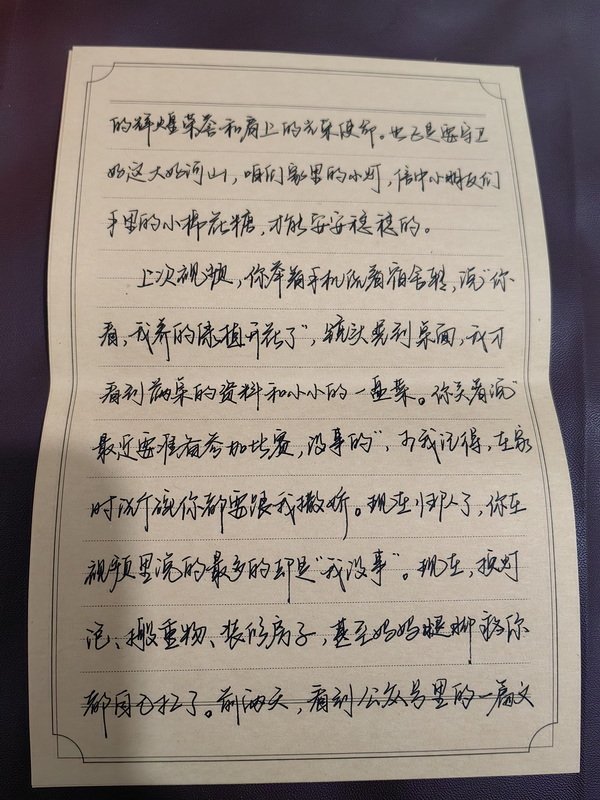 的辉煌荣誉和肩上的光荣使命。也正是要守卫
好这大好河山，咱们家里的小灯，信中小朋友们
手里的小棉花糖，才能安安稳稳的。
上次视频，你举着手机沅着宿舍转，说“你
看，我养的绿植开花了”，镜头晃到桌面，我才
看到满桌的资料和小小的一盘菜。你笑着说“
最近要准备参加比赛，没事的”，可我记得，在家
时洗个碗你都要跟我撒娇。现在归队了，你在
视频里说的最多的却是“我没事”。现在，换灯
泡、搬重物、装修房子，甚至妈妈腿脚
都自己扛了。前两天，看到公众号里的一篇文